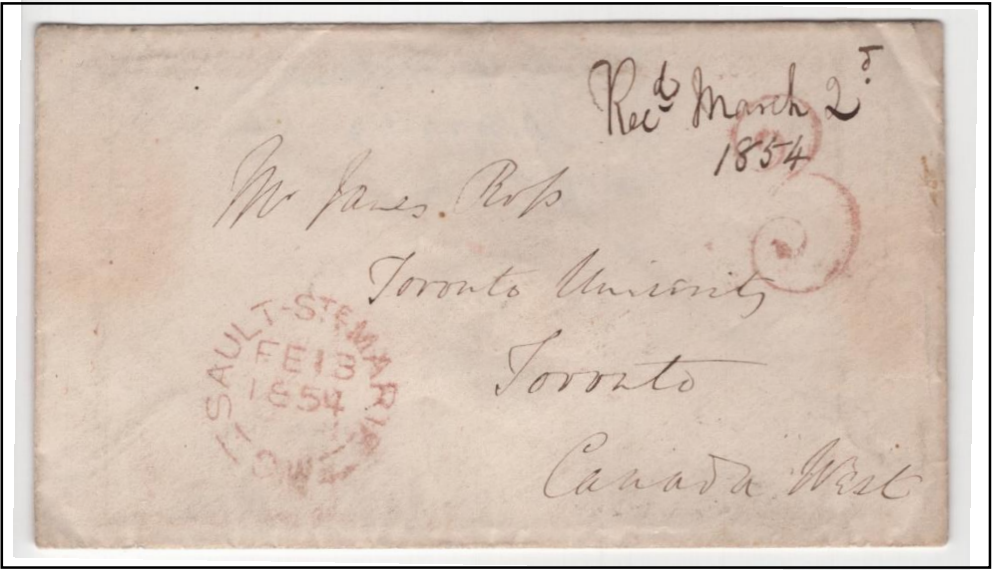 Recd March 2d
1854
3
Mr James Ross
Toronto University
Toronto
Canada West
SAULT-STE MARIE
FE 13
1854